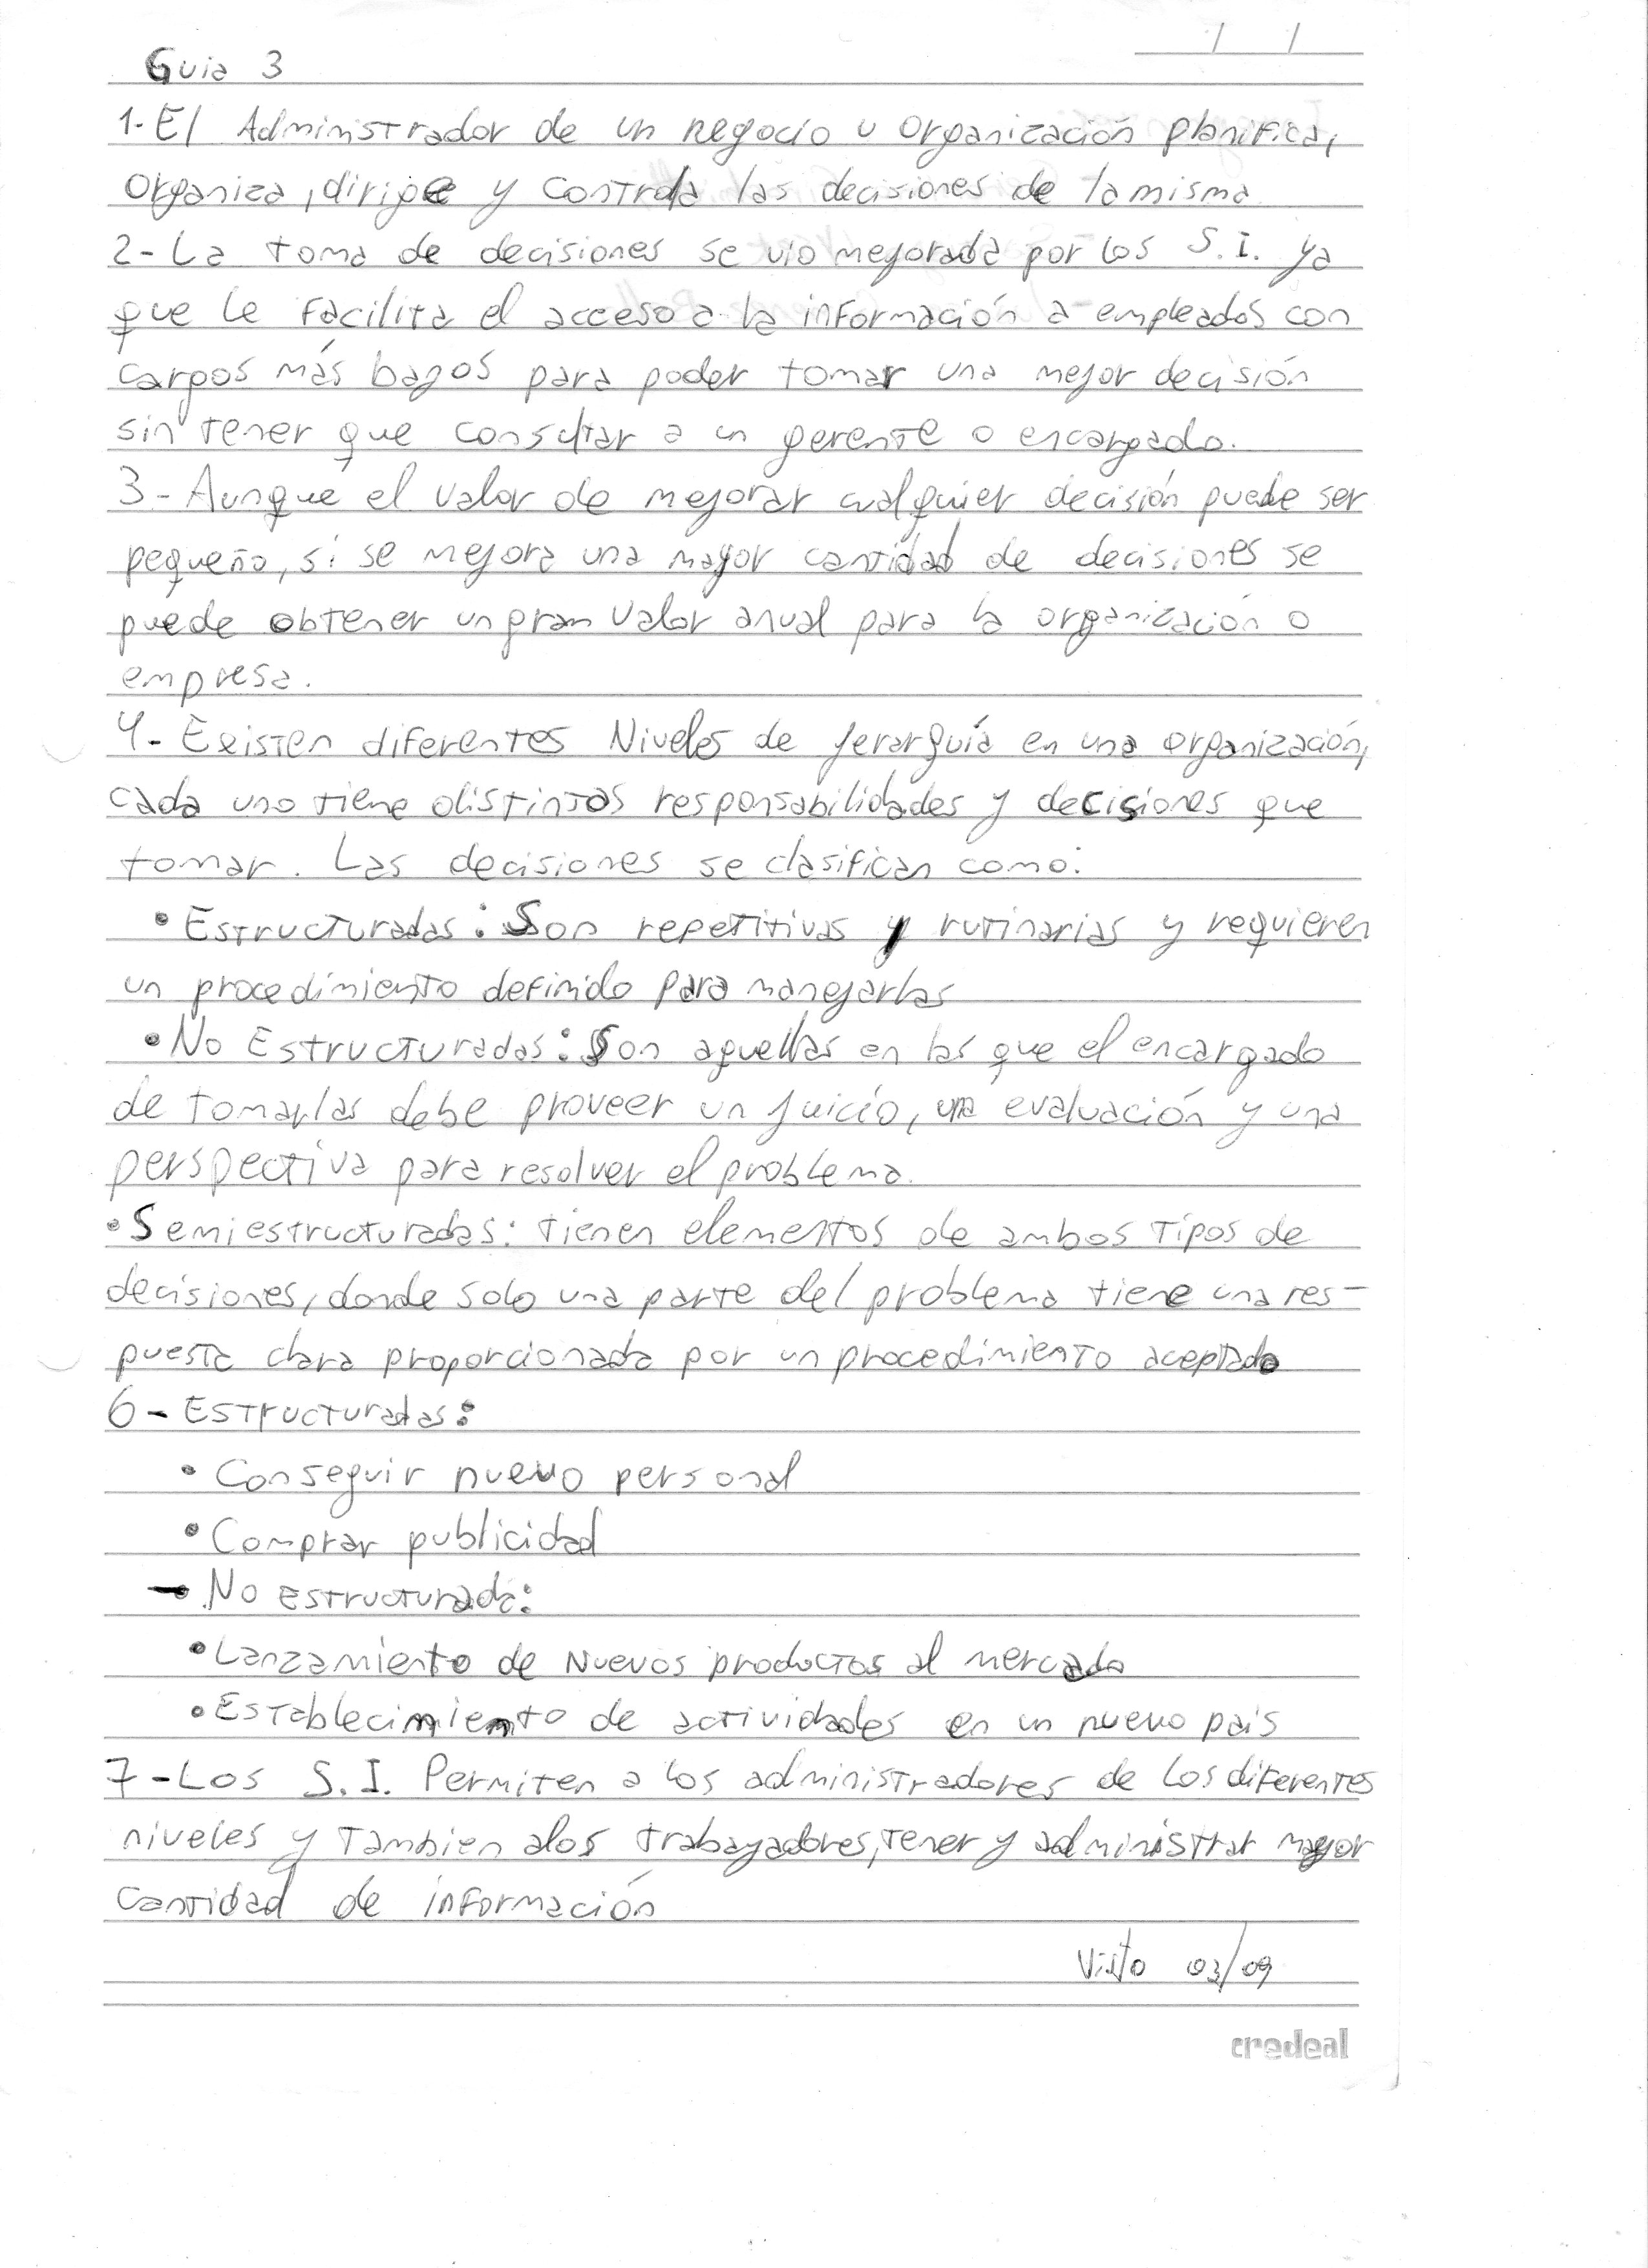 / /
Guia 3
1- El Administrador de un negocio u organización planifica,
organiza, dirige y controla las decisiones de la misma
2- La toma de decisiones se vio mejorada por los S.I. ya
que le facilita el acceso a la información a empleados con
cargos más bajos para poder tomar una mejor decisión
sin tener que consultar a un gerente o encargado.
3- Aunque el valor de mejorar cualquier decisión puede ser
pequeño, si se mejora una mayor cantidad de decisiones se
puede obtener un gran valor anual para la organización o
empresa.
4- Existen diferentes Niveles de jerarquía en una organización,
cada uno tiene distintas responsabilidades y decisiones que
tomar. Las decisiones se clasifican como:
• Estructuradas: Son repetitivas y rutinarias y requieren
un procedimiento definido para manejarlas
• No Estructuradas: Son aquellas en las que el encargado
de tomarlas debe proveer un juicio, una evaluación y una
perspectiva para resolver el problema.
• Semiestructuradas: tienen elementos de ambos tipos de
decisiones, donde solo una parte del problema tiene una res-
puesta clara proporcionada por un procedimiento aceptado
6- Estructuradas:
• Conseguir nuevo personal
• Comprar publicidad
- No estructurada:
• Lanzamiento de Nuevos productos al mercado
• Establecimiento de actividades en un nuevo pais
7- Los S.I. Permiten a los administradores de los diferentes
niveles y tambien a los trabajadores, tener y administrar mayor
cantidad de información
Visto 03/09
credeal